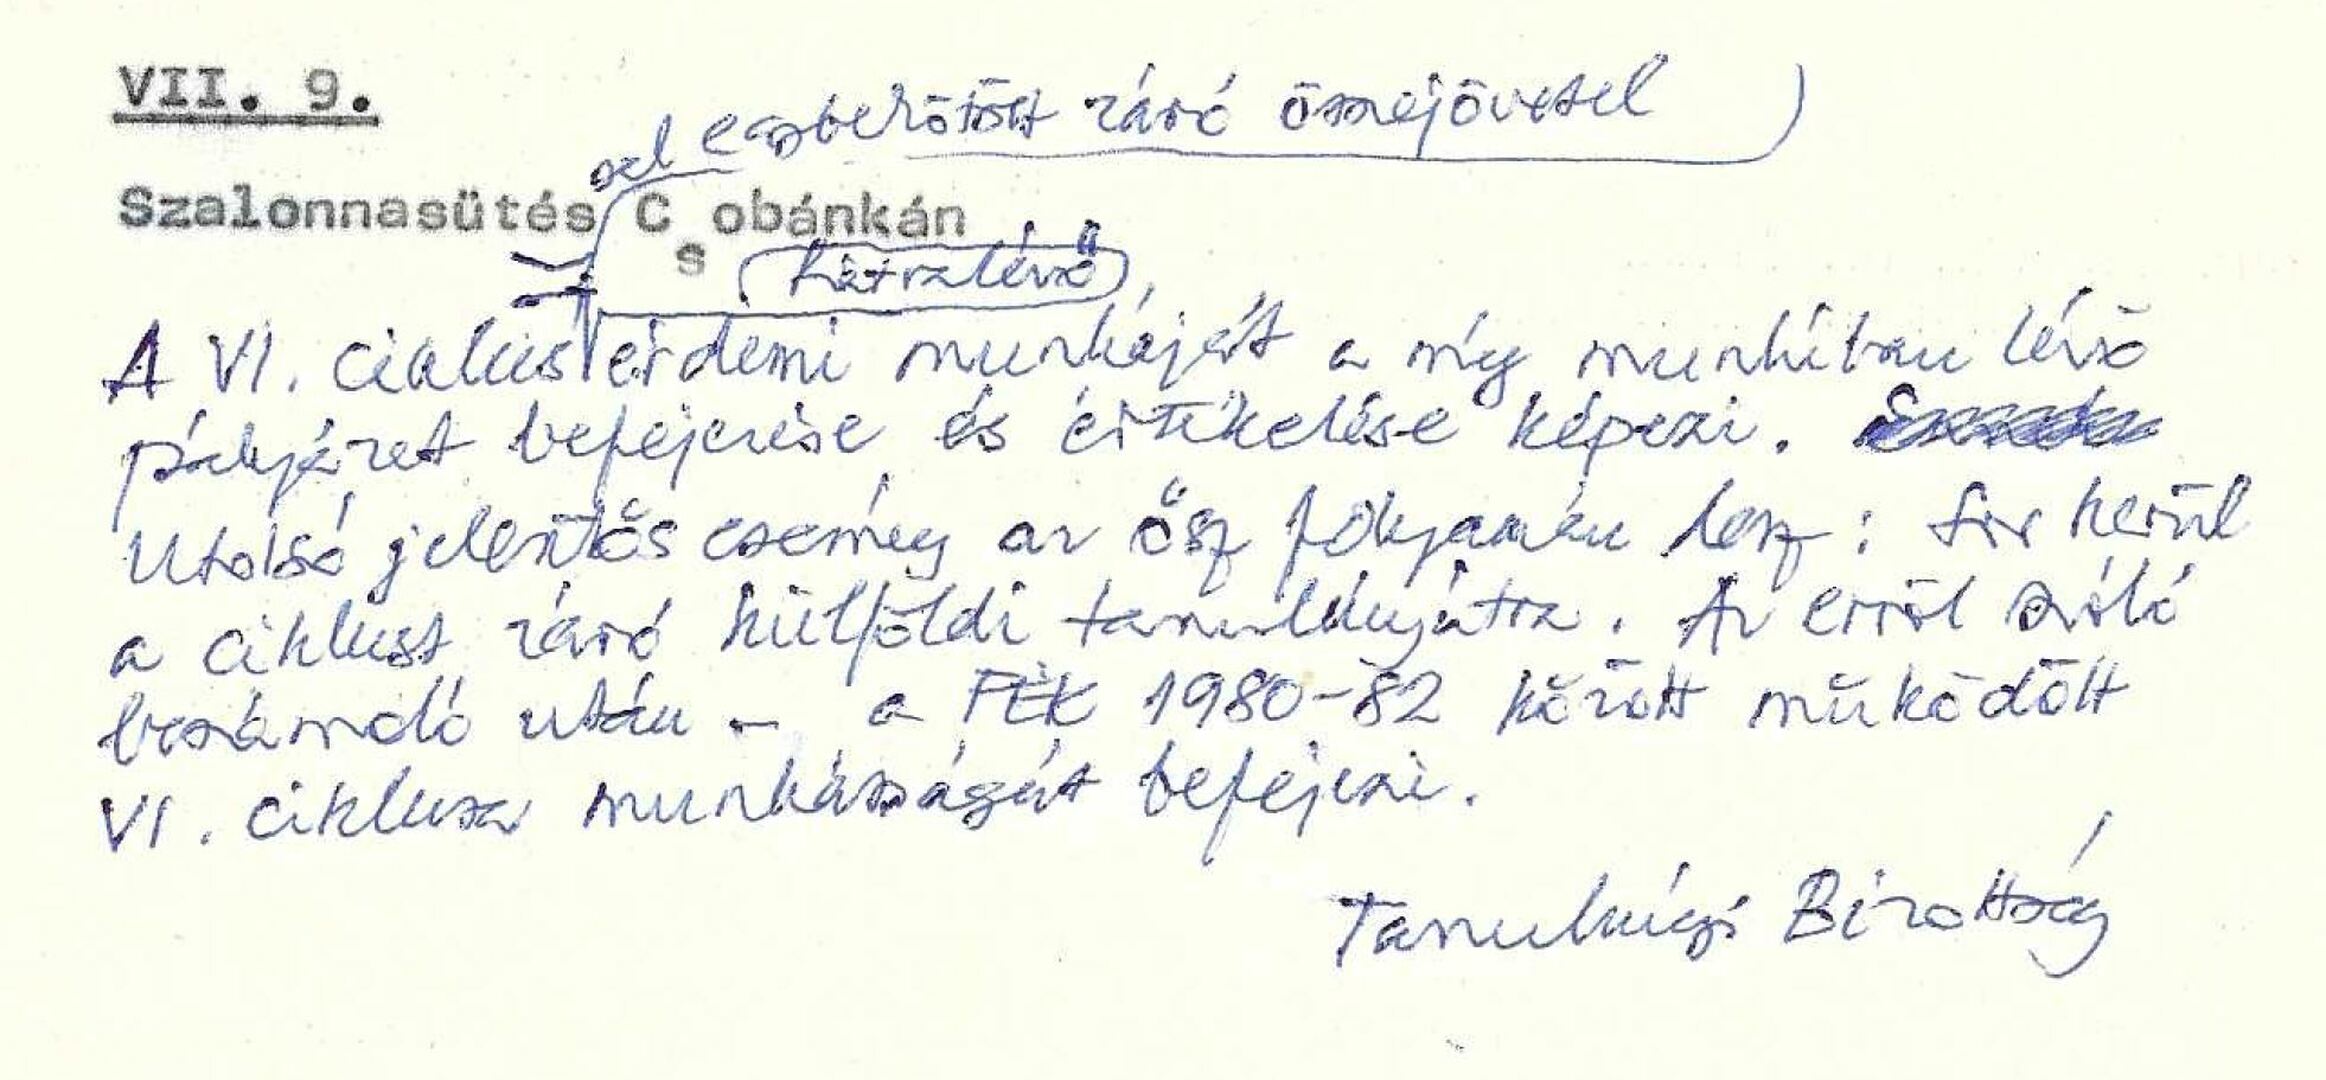 VII. 9.
-al egybekötött záró összejövetel
Szalonnasütés Csobánkán
hátralévő
A VI. ciklus érdemi munkáját a még munkában lévő
pályázat befejezése és értékelése képezi.
Utolsó jelentős esemény az ősz folyamán lesz: sor kerül
a ciklust záró külföldi tanulmányútra. Az erről szóló
beszámoló után – a FÉK 1980-82 között működött
VI. ciklusa munkásságát befejezi.
Tanulmányi Bizottság